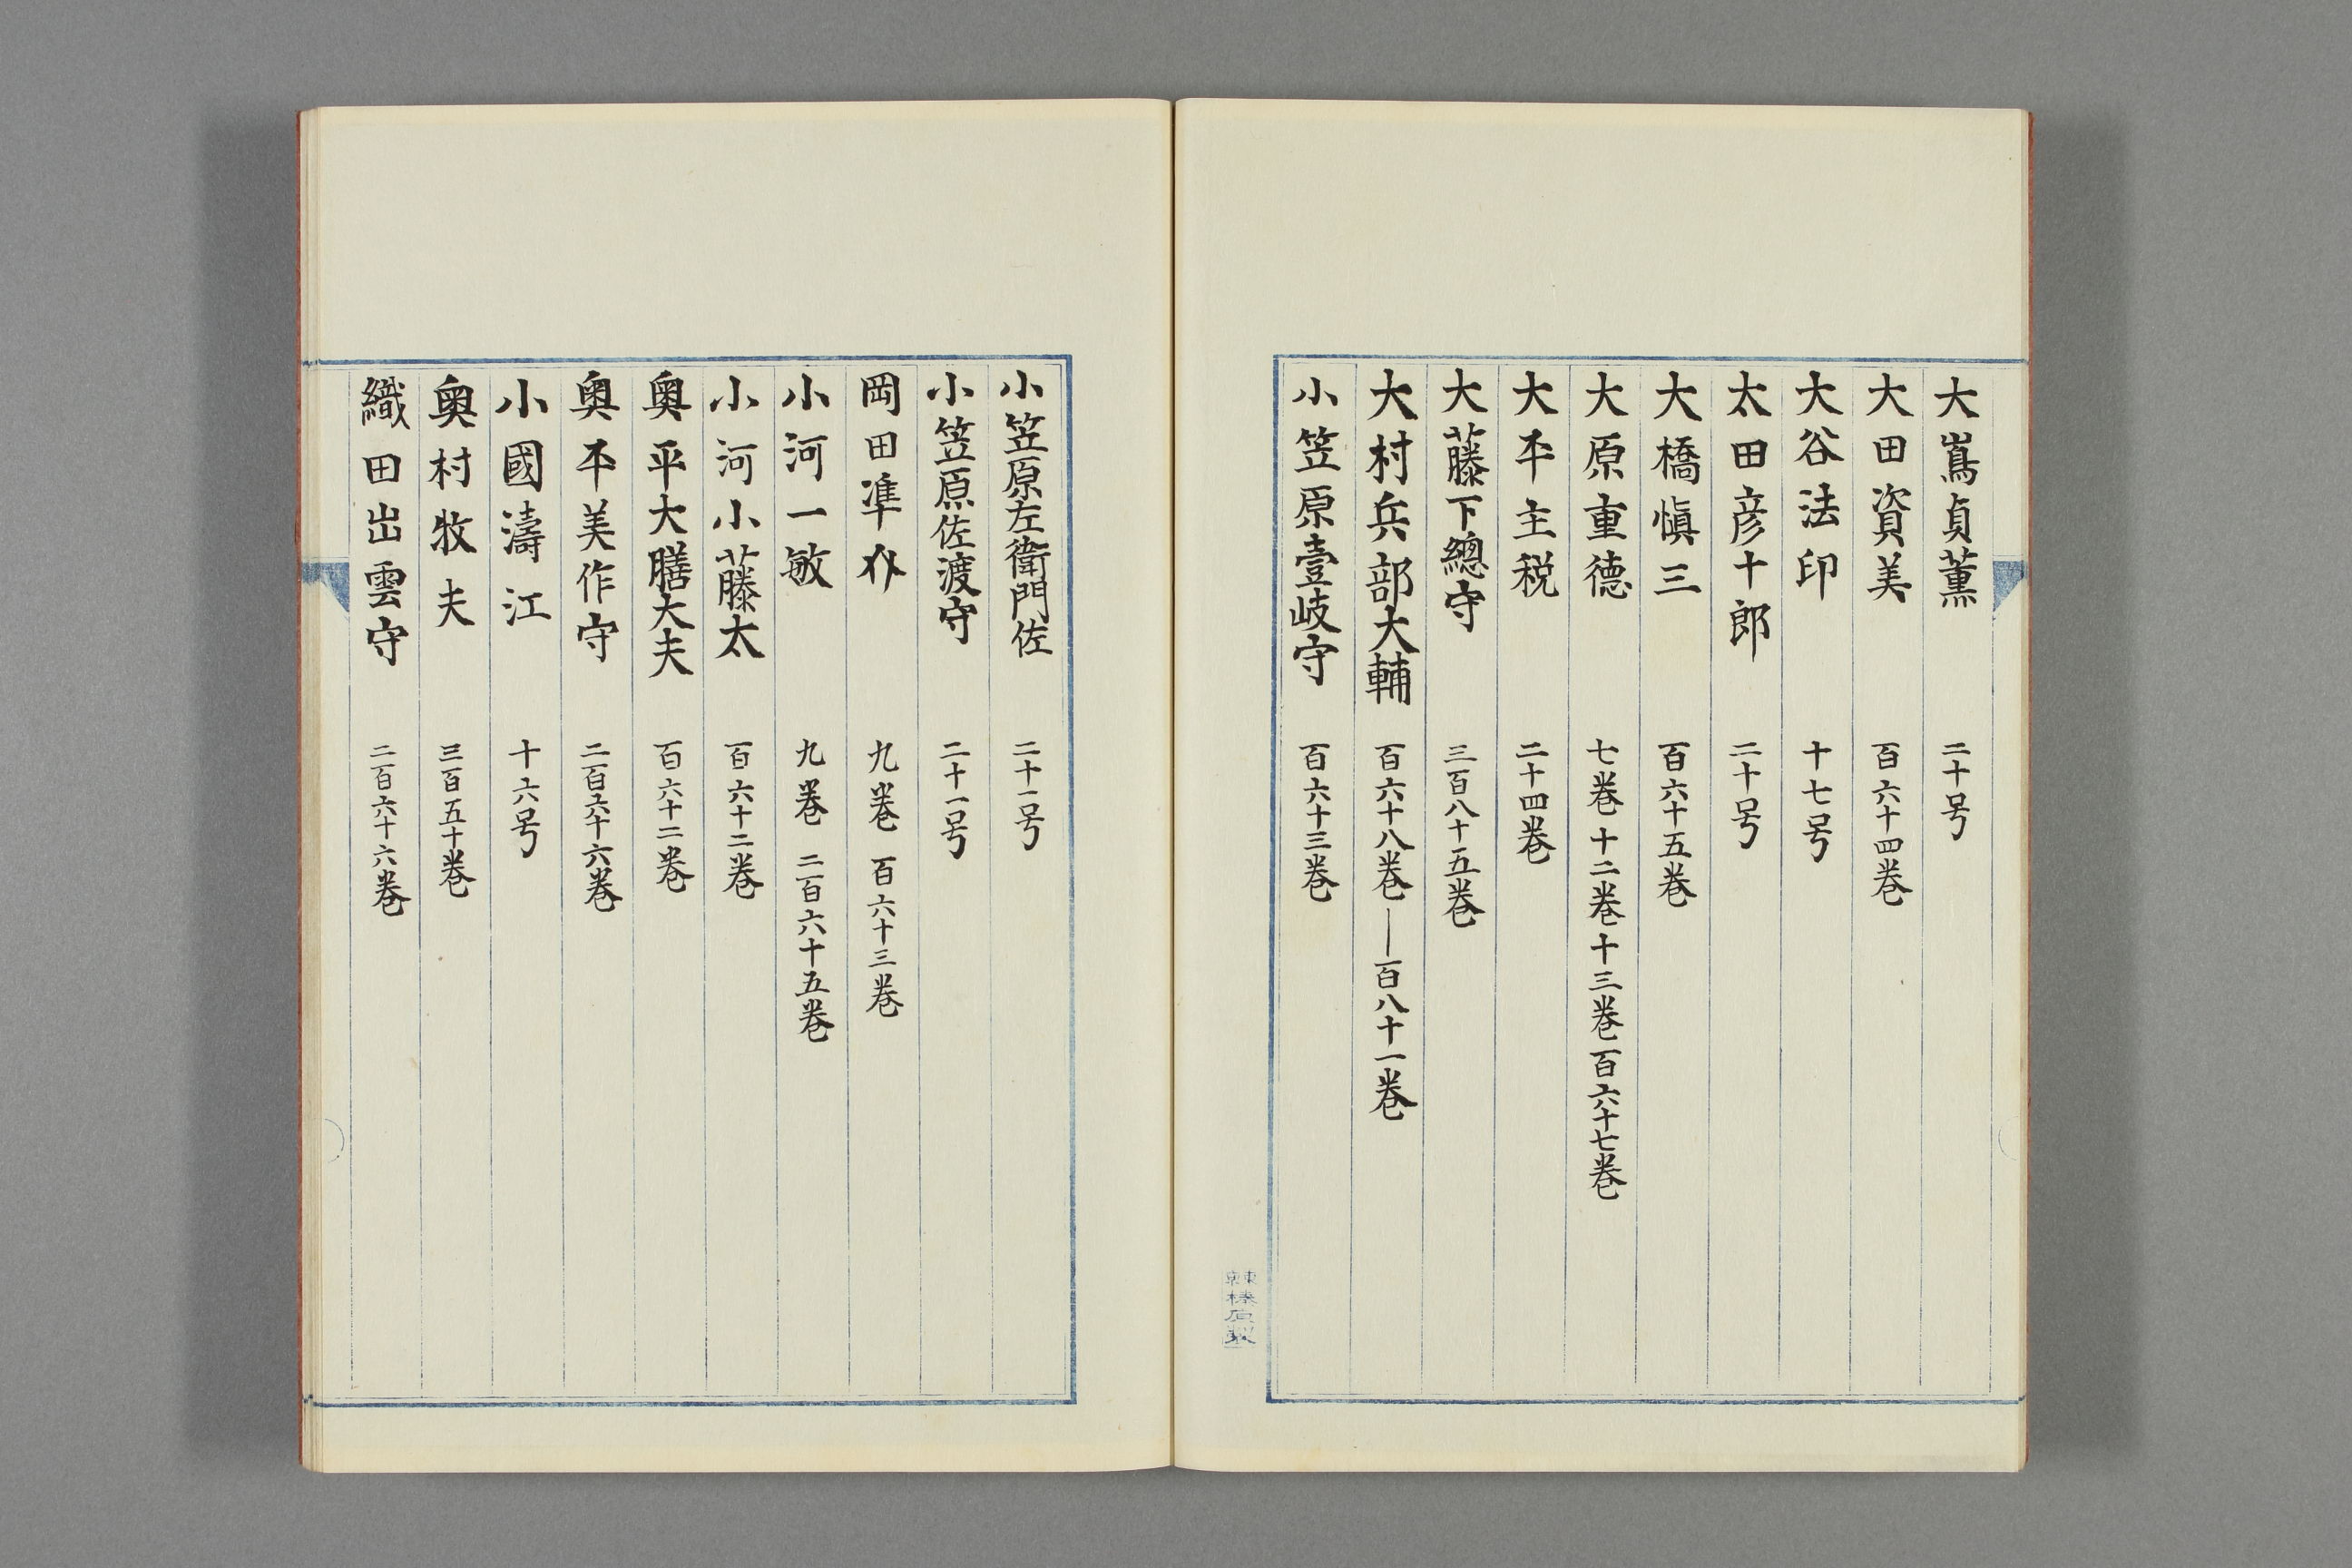 大嶌貞薫 二十号
大田資美 百六十四巻
大谷法印 十七号
太田彦十郎 二十号
大橋愼三 百六十五巻
大原重德 七巻 十二巻 十三巻 百六十七巻
大平主税 二十四巻
大藤下總守 三百八十五巻
大村兵部大輔 百六十八巻—百八十一巻
小笠原壹岐守 百六十三巻
小笠原左衛門佐 二十一号
小笠原佐渡守 二十一号
岡田準介 九巻 百六十三巻
小河一敏 九巻 二百六十五巻
小河小藤太 百六十二巻
奥平大膳大夫 百六十二巻
奥平美作守 二百六十六巻
小國濤江 十六号
奥村牧夫 三百五十巻
織田出雲守 二百六十六巻